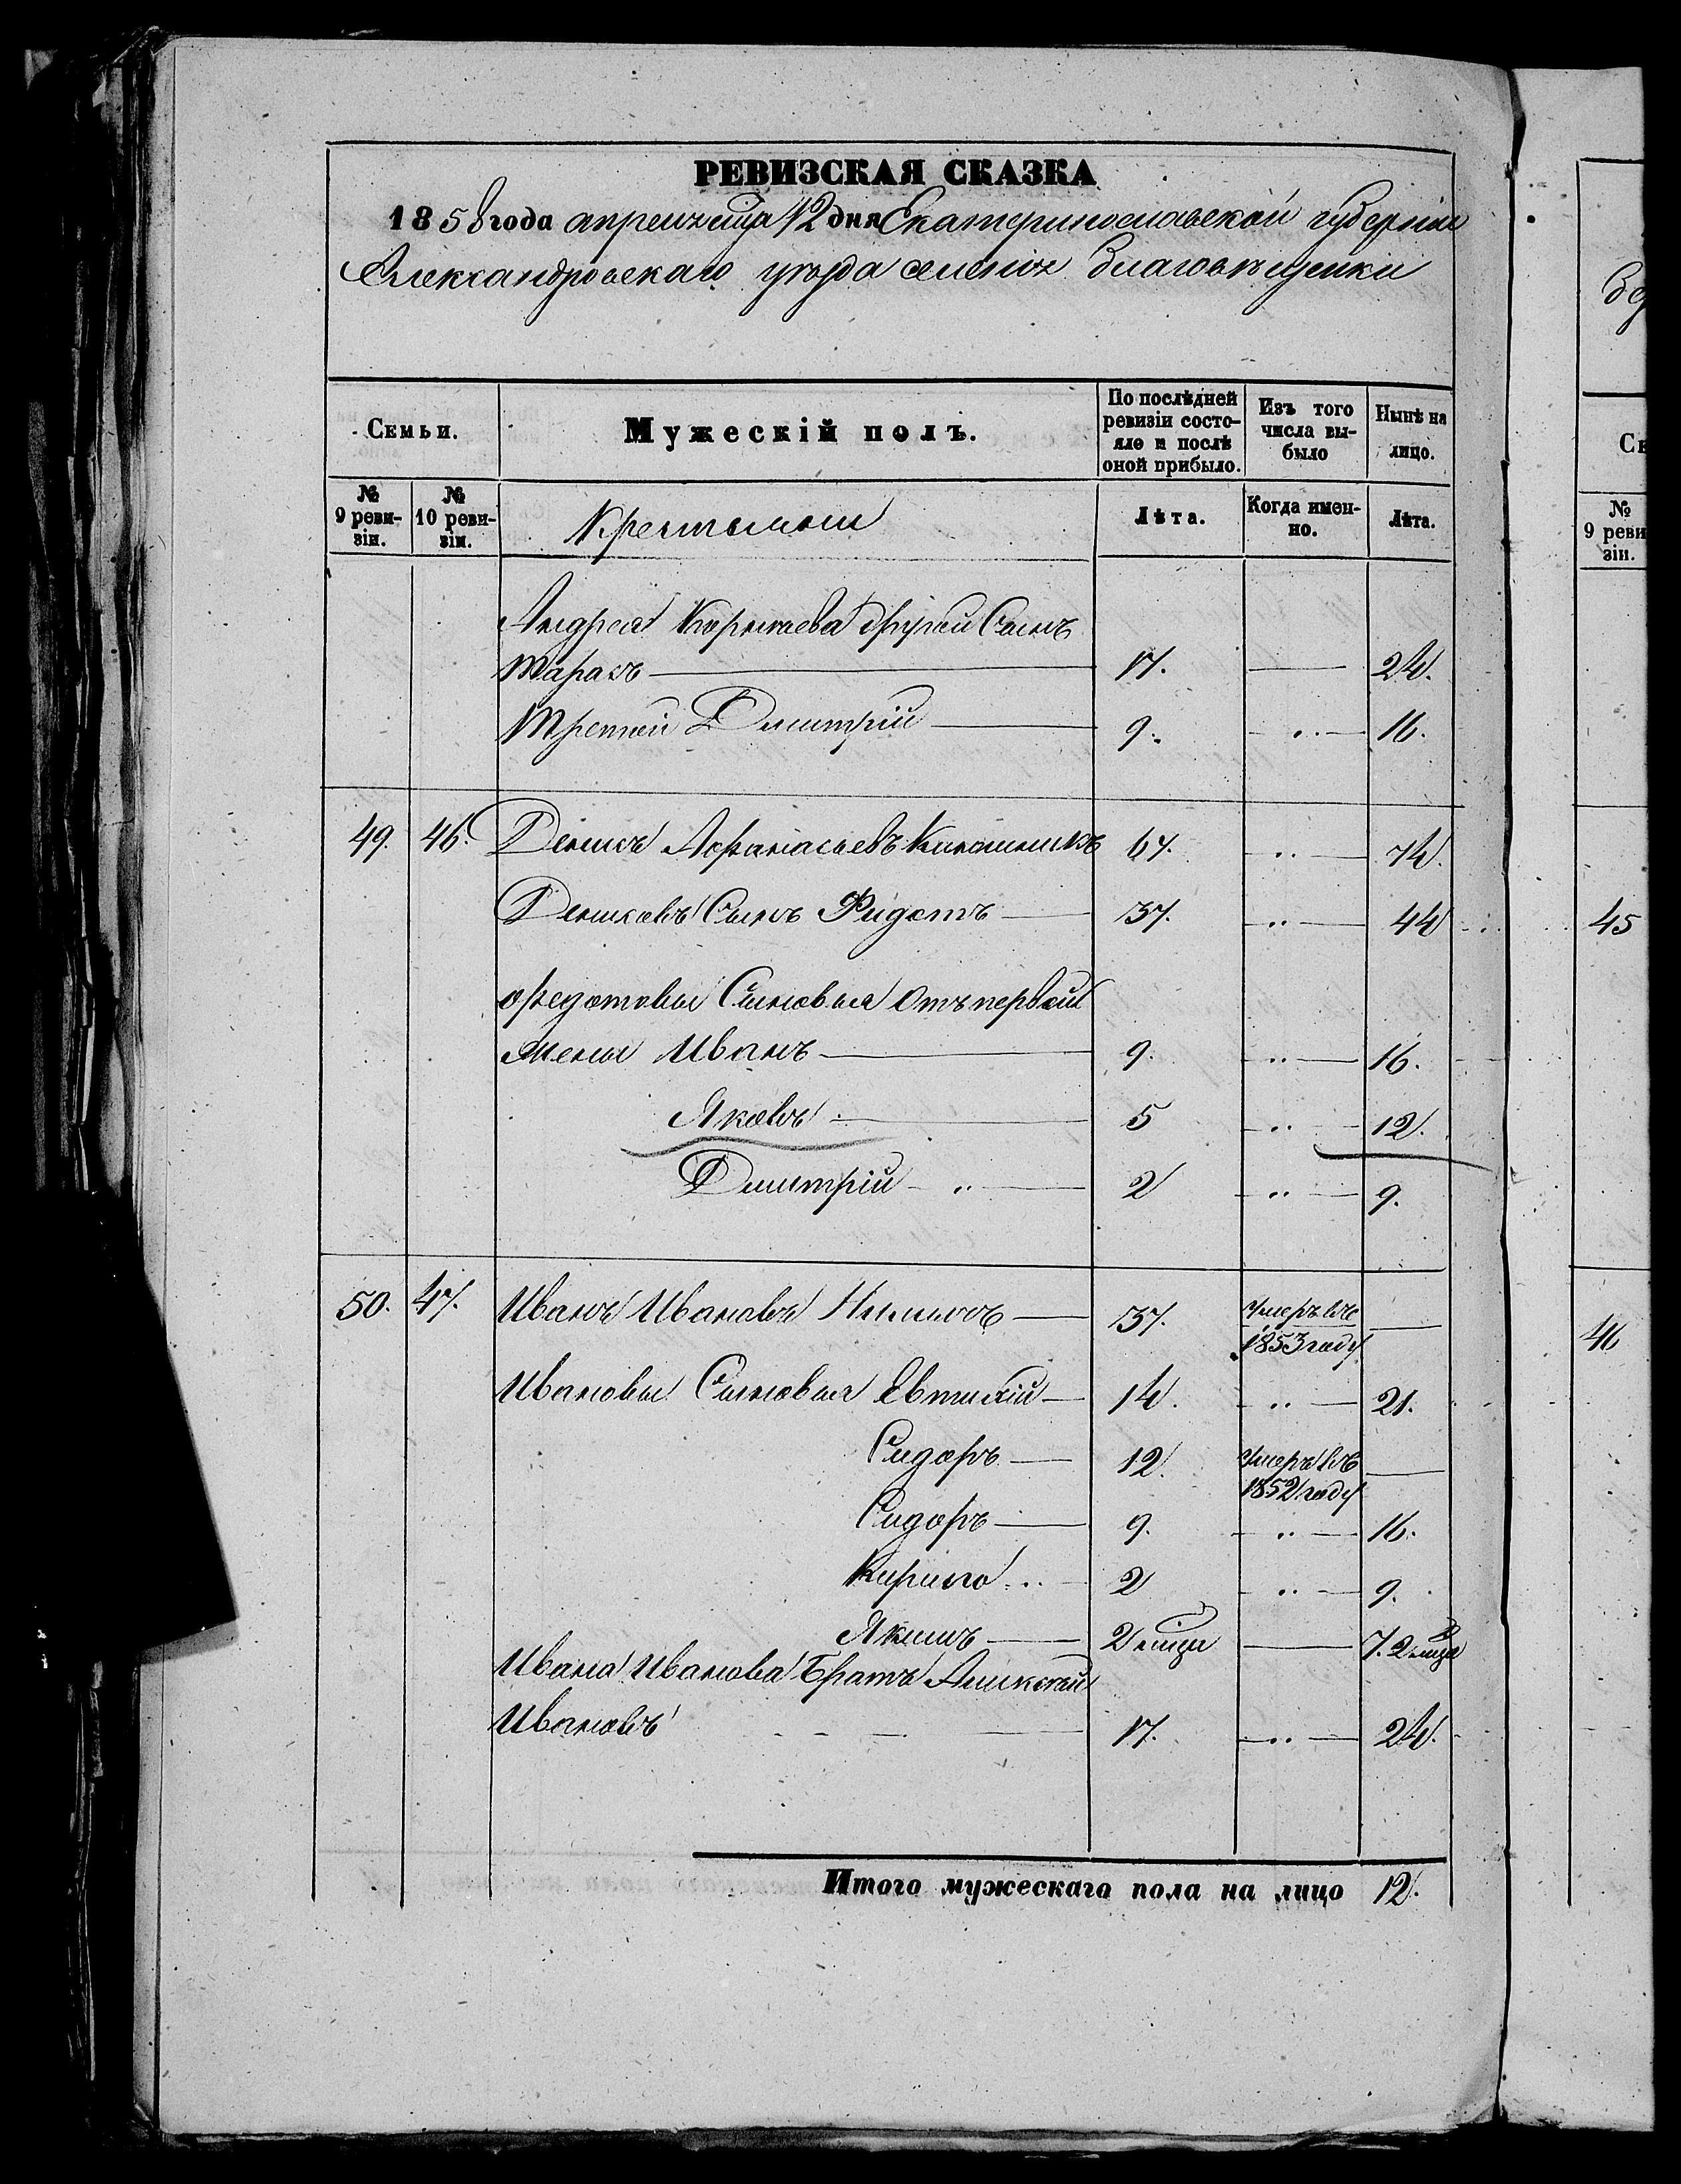 РЕВИЗСКАЯ СКАЗКА
1858 года апреля мца 12 дня Екатеринославской губернии
Александровскаго уезда селения Благовещенки
Семьи.
Мужескій полъ.
По послѣдней ревизіи состояло и послѣ оной прибыло.
Изъ того числа выбыло
Нынѣ на лицо.
№ 9 ревизіи.
№ 10 ревизіи.
Крестьяне
Лѣта.
Когда именно.
Лѣта.
Андрея Корнаева другой Сынъ
Тарасъ 17. 24.
Третей Дмитрій 9. 16.
49. 46. Денисъ Афанасьевъ 67. 74.
Денисовъ Сынъ Фидотъ 37. 44
Федотовы Сыновья отъ первой
жены Иванъ 9. 16.
Яковъ 5 12.
Дмитрій 2 9.
50. 47. Иванъ Ивановъ 37. умеръ въ 1853 году
Ивановы Сыновья Евтихій 14. 21.
Сидоръ 12. умеръ въ 1852 году
Сидоръ 9. 16.
Кирило 2 9.
Якимъ 2 мца 7. 2 мца
Ивана Иванова Братъ
Ивановъ 17. 24.
Итого мужескаго пола на лицо 12.
№ 9 реви
зіи.
45
46